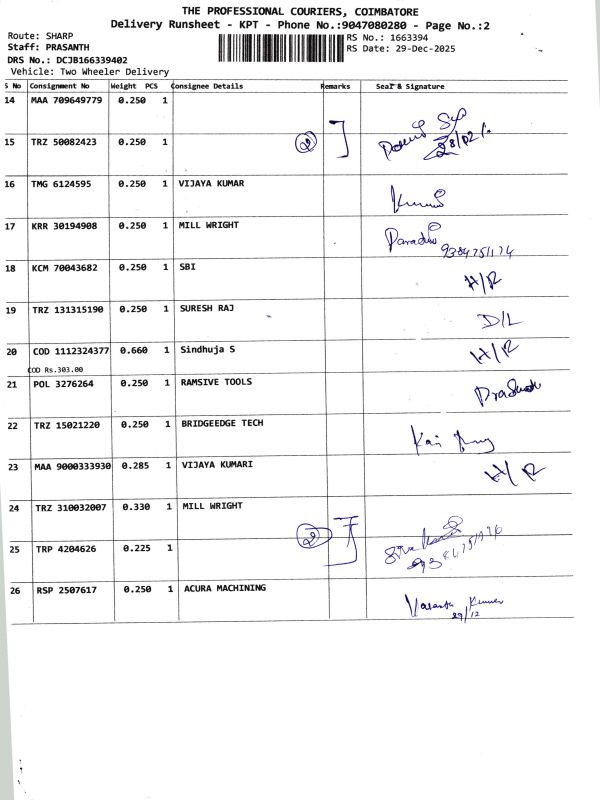 THE PROFESSIONAL COURIERS, COIMBATORE
Delivery Runsheet - KPT - Phone No.:9047080280 - Page No.:2
Route: SHARP
RS No.: 1663394
Staff: PRASANTH
RS Date: 29-Dec-2025
DRS No.: DCJB166339402
Vehicle: Two Wheeler Delivery
S No Consignment No Weight PCS Consignee Details Remarks Seal & Signature
14 MAA 709649779 0.250 1
15 TRZ 50082423 0.250 1
16 TMG 6124595 0.250 1 VIJAYA KUMAR
17 KRR 30194908 0.250 1 MILL WRIGHT
18 KCM 70043682 0.250 1 SBI H/R
19 TRZ 131315190 0.250 1 SURESH RAJ D/L
20 COD 1112324377 0.660 1 Sindhuja S H/R
COD Rs.303.00
21 POL 3276264 0.250 1 RAMSIVE TOOLS
22 TRZ 15021220 0.250 1 BRIDGEEDGE TECH
23 MAA 9000333930 0.285 1 VIJAYA KUMARI H/R
24 TRZ 310032007 0.330 1 MILL WRIGHT
25 TRP 4204626 0.225 1
26 RSP 2507617 0.250 1 ACURA MACHINING
29/12